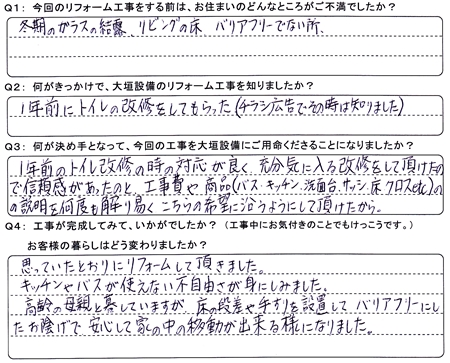 Q1: 今回のリフォーム工事をする前は、お住まいのどんなところがご不満でしたか?
冬期のガラスの結露、リビングの床 バリアフリーでない所、
Q2: 何がきっかけで、大垣設備のリフォーム工事を知りましたか?
1年前にトイレの改修をしてもらった(チラシ広告でその時は知りました)
Q3: 何が決め手となって、今回の工事を大垣設備にご用命くださることになりましたか?
1年前のトイレ改修の時の対応が良く、充分気に入る改修をして頂けたの
で信頼感があったのと、工事費や商品(バス・キッチン、洗面台、サッシ、床、クロスetc)の
の説明を何度も解り易く こちらの希望に沿うようにして頂けたから。
Q4: 工事が完成してみて、いかがでしたか?(工事中にお気付きのことでもけっこうです。)
お客様の暮らしはどう変わりましたか?
思っていたとおりにリフォームして頂きました。
キッチンやバスが使えない不自由さが身にしみました。
高齢の母親と暮していますが、床の段差や手すりを設置して バリアフリーにし
たお陰げで 安心して家の中の移動が出来る様になりました。